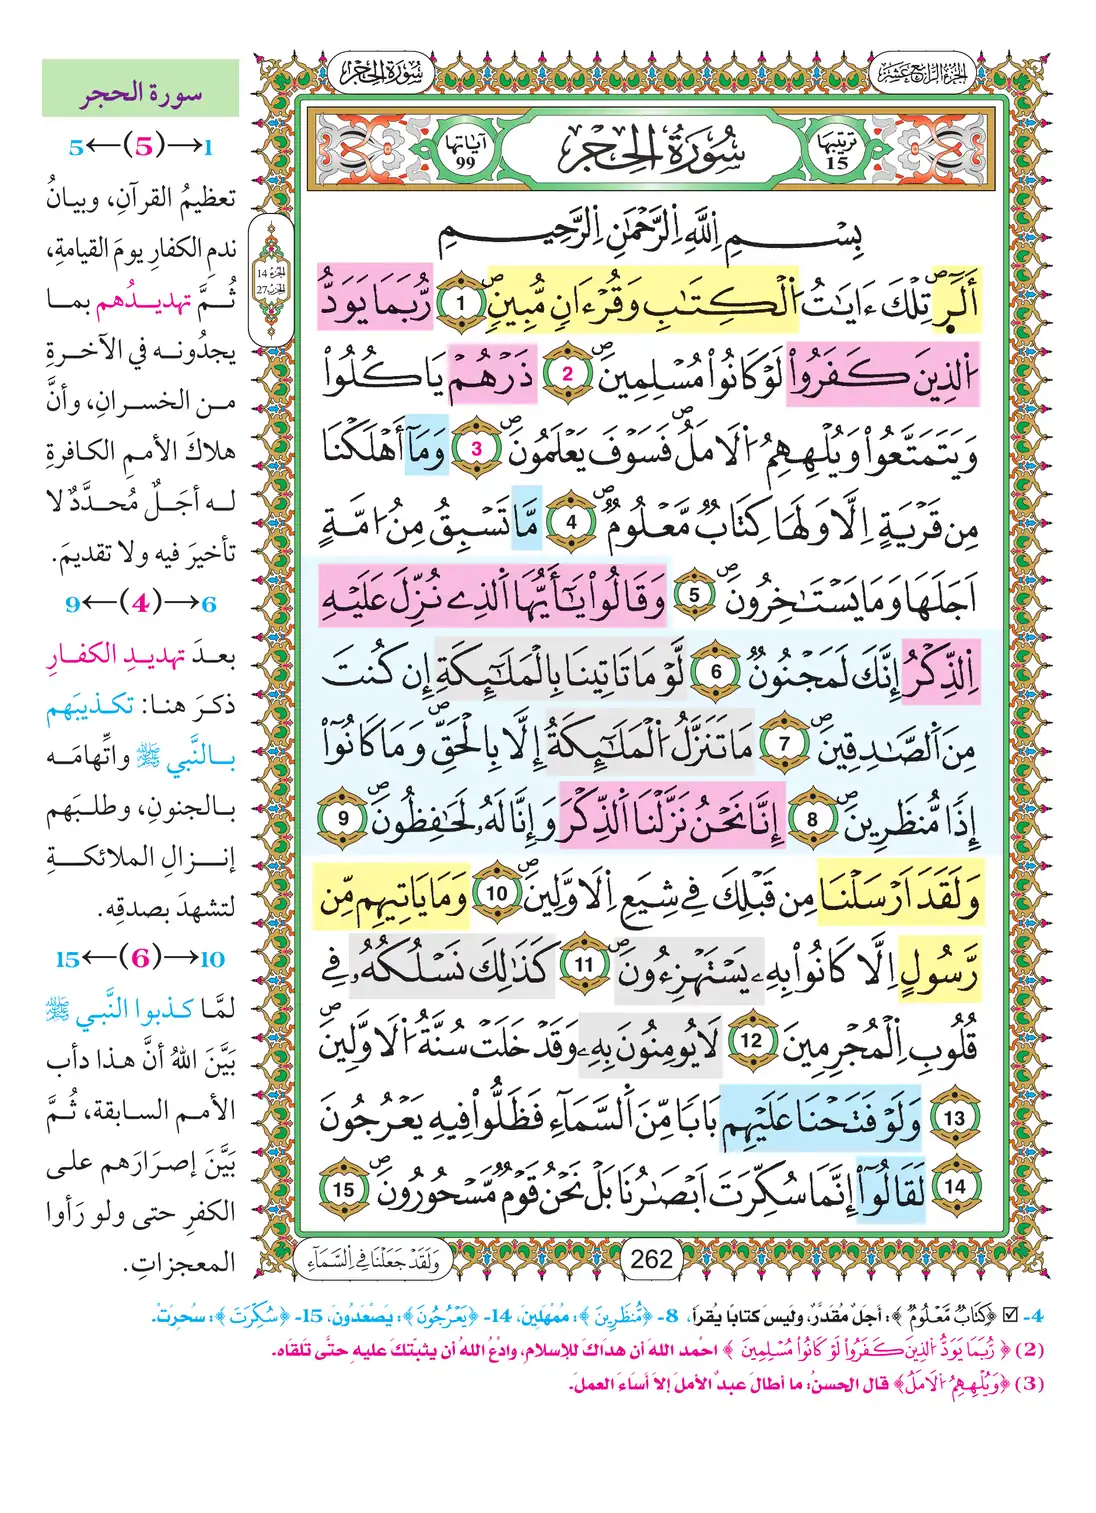 سُورَةُ الحِجْرِ
الجُزْءُ الرَّابِعَ عَشَرَ
سورة الحجر
1→(5)←5
تعظيمُ القرآنِ، وبيانُ
ندمِ الكفارِ يومَ القيامةِ،
ثُمَّ تهديدُهم بما
يجدُونه في الآخرةِ
من الخسرانِ، وأنَّ
هلاكَ الأممِ الكافرةِ
له أجَلٌ مُحدَّدٌ لا
تأخيرَ فيه ولا تقديمَ.
6→(4)←9
بعدَ تهديدِ الكفارِ
ذكرَ هنا: تكذيبَهم
بالنَّبي ﷺ واتِّهامَه
بالجنونِ، وطلبَهم
إنزالِ الملائكةِ
لتشهدَ بصدقِه.
10→(6)←15
لمَّا كذبوا النَّبي ﷺ
بَيَّنَ اللهُ أنَّ هذا دأب
الأمم السابقة، ثُمَّ
بَيَّنَ إصرَارَهم على
الكفرِ حتى ولو رَأوا
المعجزاتِ.
ترتيبها 15
سُورَةُ الحِجْرِ
آياتها 99
الجزء 14
الحزب 27
بِسْمِ اِللَّهِ اِلرَّحْمَٰنِ اِلرَّحِيمِ
أَلَٓرۖ تِلْكَ ءَايَٰتُ اُ۬لْكِتَٰبِ وَقُرْءَانٖ مُّبِينٖۖ 1 رُّبَمَا يَوَدُّ
اُ۬لذِينَ كَفَرُواْ لَوْ كَانُواْ مُسْلِمِينَۖ 2 ذَرْهُمْ يَاكُلُواْ
وَيَتَمَتَّعُواْ وَيُلْهِهِمُ اُ۬لَامَلُۖ فَسَوْفَ يَعْلَمُونَۖ 3 وَمَآ أَهْلَكْنَا
مِن قَرْيَةٍ اِلَّا وَلَهَا كِتَابٞ مَّعْلُومٞۖ 4 مَّا تَسْبِقُ مِنُ ا۟مَّةٍ
اَجَلَهَا وَمَا يَسْتَٰخِرُونَۖ 5 وَقَالُواْ يَٰٓأَيُّهَا اَ۬لذِے نُزِّلَ عَلَيْهِ
اِ۬لذِّكْرُ إِنَّكَ لَمَجْنُونٞۖ 6 لَّوْ مَا تَاتِينَا بِالْمَلَٰٓئِكَةِ إِن كُنتَ
مِنَ اَ۬لصَّٰدِقِينَۖ 7 مَا تَنَزَّلُ اُ۬لْمَلَٰٓئِكَةُ إِلَّا بِالْحَقِّۖ وَمَا كَانُوٓاْ
إِذاٗ مُّنظَرِينَۖ 8 إِنَّا نَحْنُ نَزَّلْنَا اَ۬لذِّكْرَ وَإِنَّا لَهُۥ لَحَٰفِظُونَۖ 9
وَلَقَدَ اَرْسَلْنَا مِن قَبْلِكَ فِے شِيَعِ اِ۬لَاوَّلِينَۖ 10 وَمَا يَاتِيهِم مِّن
رَّسُولٍ اِلَّا كَانُواْ بِهِۦ يَسْتَهْزِءُونَۖ 11 كَذَٰلِكَ نَسْلُكُهُۥ فِے
قُلُوبِ اِ۬لْمُجْرِمِينَ 12 لَا يُومِنُونَ بِهِۦ وَقَدْ خَلَتْ سُنَّةُ اُ۬لَاوَّلِينَۖ
13 وَلَوْ فَتَحْنَا عَلَيْهِم بَاباٗ مِّنَ اَ۬لسَّمَآءِ فَظَلُّواْ فِيهِ يَعْرُجُونَ
14 لَقَالُوٓاْ إِنَّمَا سُكِّرَتَ اَبْصَٰرُنَا بَلْ نَحْنُ قَوْمٞ مَّسْحُورُونَۖ 15
262
وَلَقَدْ جَعَلْنَا فِے اِ۬لسَّمَآءِ
4- ☑ ﴿كِتَابٞ مَّعْلُومٞ﴾: أجلٌ مُقدَّرٌ، وليسَ كتابًا يُقرأ، 8- ﴿مُّنظَرِينَ﴾: مُمْهَلِينَ، 14- ﴿يَعْرُجُونَ﴾: يَصْعَدُونَ، 15- ﴿سُكِّرَتَ﴾: سُحِرَتْ.
(2) ﴿رُّبَمَا يَوَدُّ اُ۬لذِينَ كَفَرُواْ لَوْ كَانُواْ مُسْلِمِينَ﴾ احْمد الله أن هداك للإسلام، وادْعُ الله أن يثبّتكَ عليهِ حتَّى تلقاه.
(3) ﴿وَيُلْهِهِمُ اُ۬لَامَلُ﴾ قال الحسنُ: ما أطالَ عبدٌ الأملَ إلاَّ أساءَ العملَ.